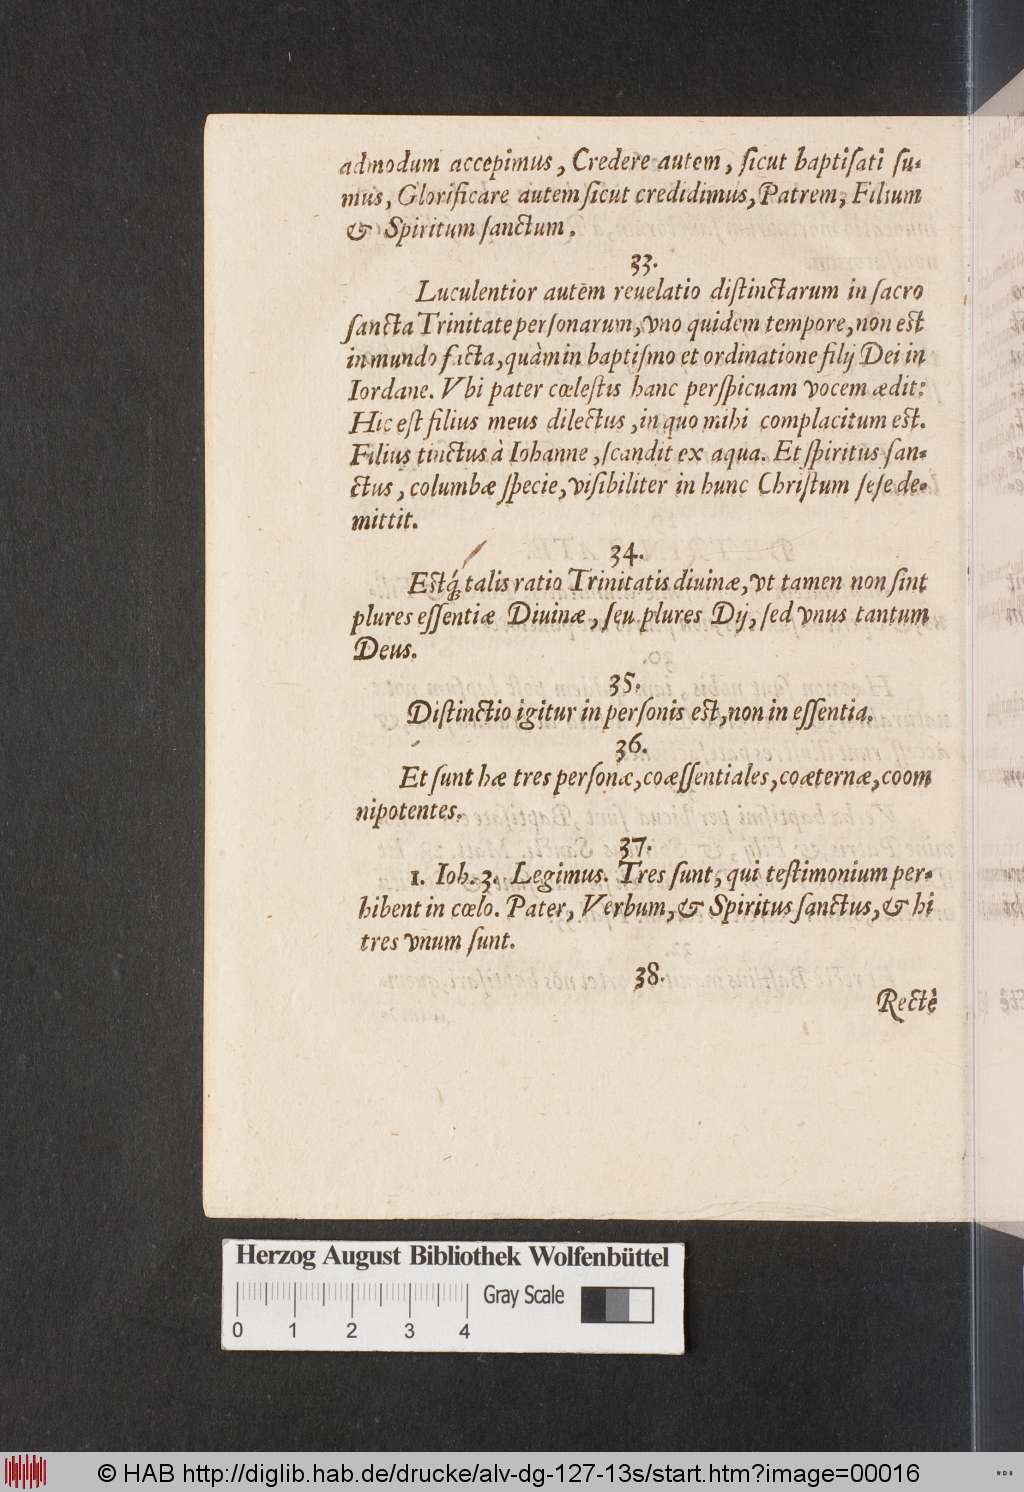 admodum accepimus, Credere autem, ſicut baptiſati ſu-
mus, Glorificare autem ſicut credidimus, Patrem, Filium
& Spiritum ſanctum.
33.
Luculentior autẽm reuelatio diſtinctarum in ſacro
ſancta Trinitate perſonarum, vno quidem tempore, non eſt
in mundo facta, quàm in baptiſmo et ordinatione filij Dei in
Iordane. Vbi pater cœleſtis hanc perſpicuam vocem ædit:
Hic eſt filius meus dilectus, in quo mihi complacitum eſt.
Filius tinctus à Iohanne, ſcandit ex aqua. Et ſpiritus ſan-
ctus, columbæ ſpecie, viſibiliter in hunc Chriſtum ſeſe de-
mittit.
34.
Eſtq́; talis ratio Trinitatis diuinæ, vt tamen non ſint
plures eſſentiæ Diuinæ, ſeu plures Dij, ſed vnus tantum
Deus.
35.
Diſtinctio igitur in perſonis eſt, non in eſſentia.
36.
Et ſunt hæ tres perſonæ, coæſſentiales, coæternæ, coom
nipotentes.
37.
1. Ioh. 3. Legimus. Tres ſunt, qui teſtimonium per-
hibent in cœlo. Pater, Verbum, & Spiritus ſanctus, & hi
tres vnum ſunt.
38.
Rectè
Herzog August Bibliothek Wolfenbüttel
Gray Scale
0 1 2 3 4
© HAB http://diglib.hab.de/drucke/alv-dg-127-13s/start.htm?image=00016